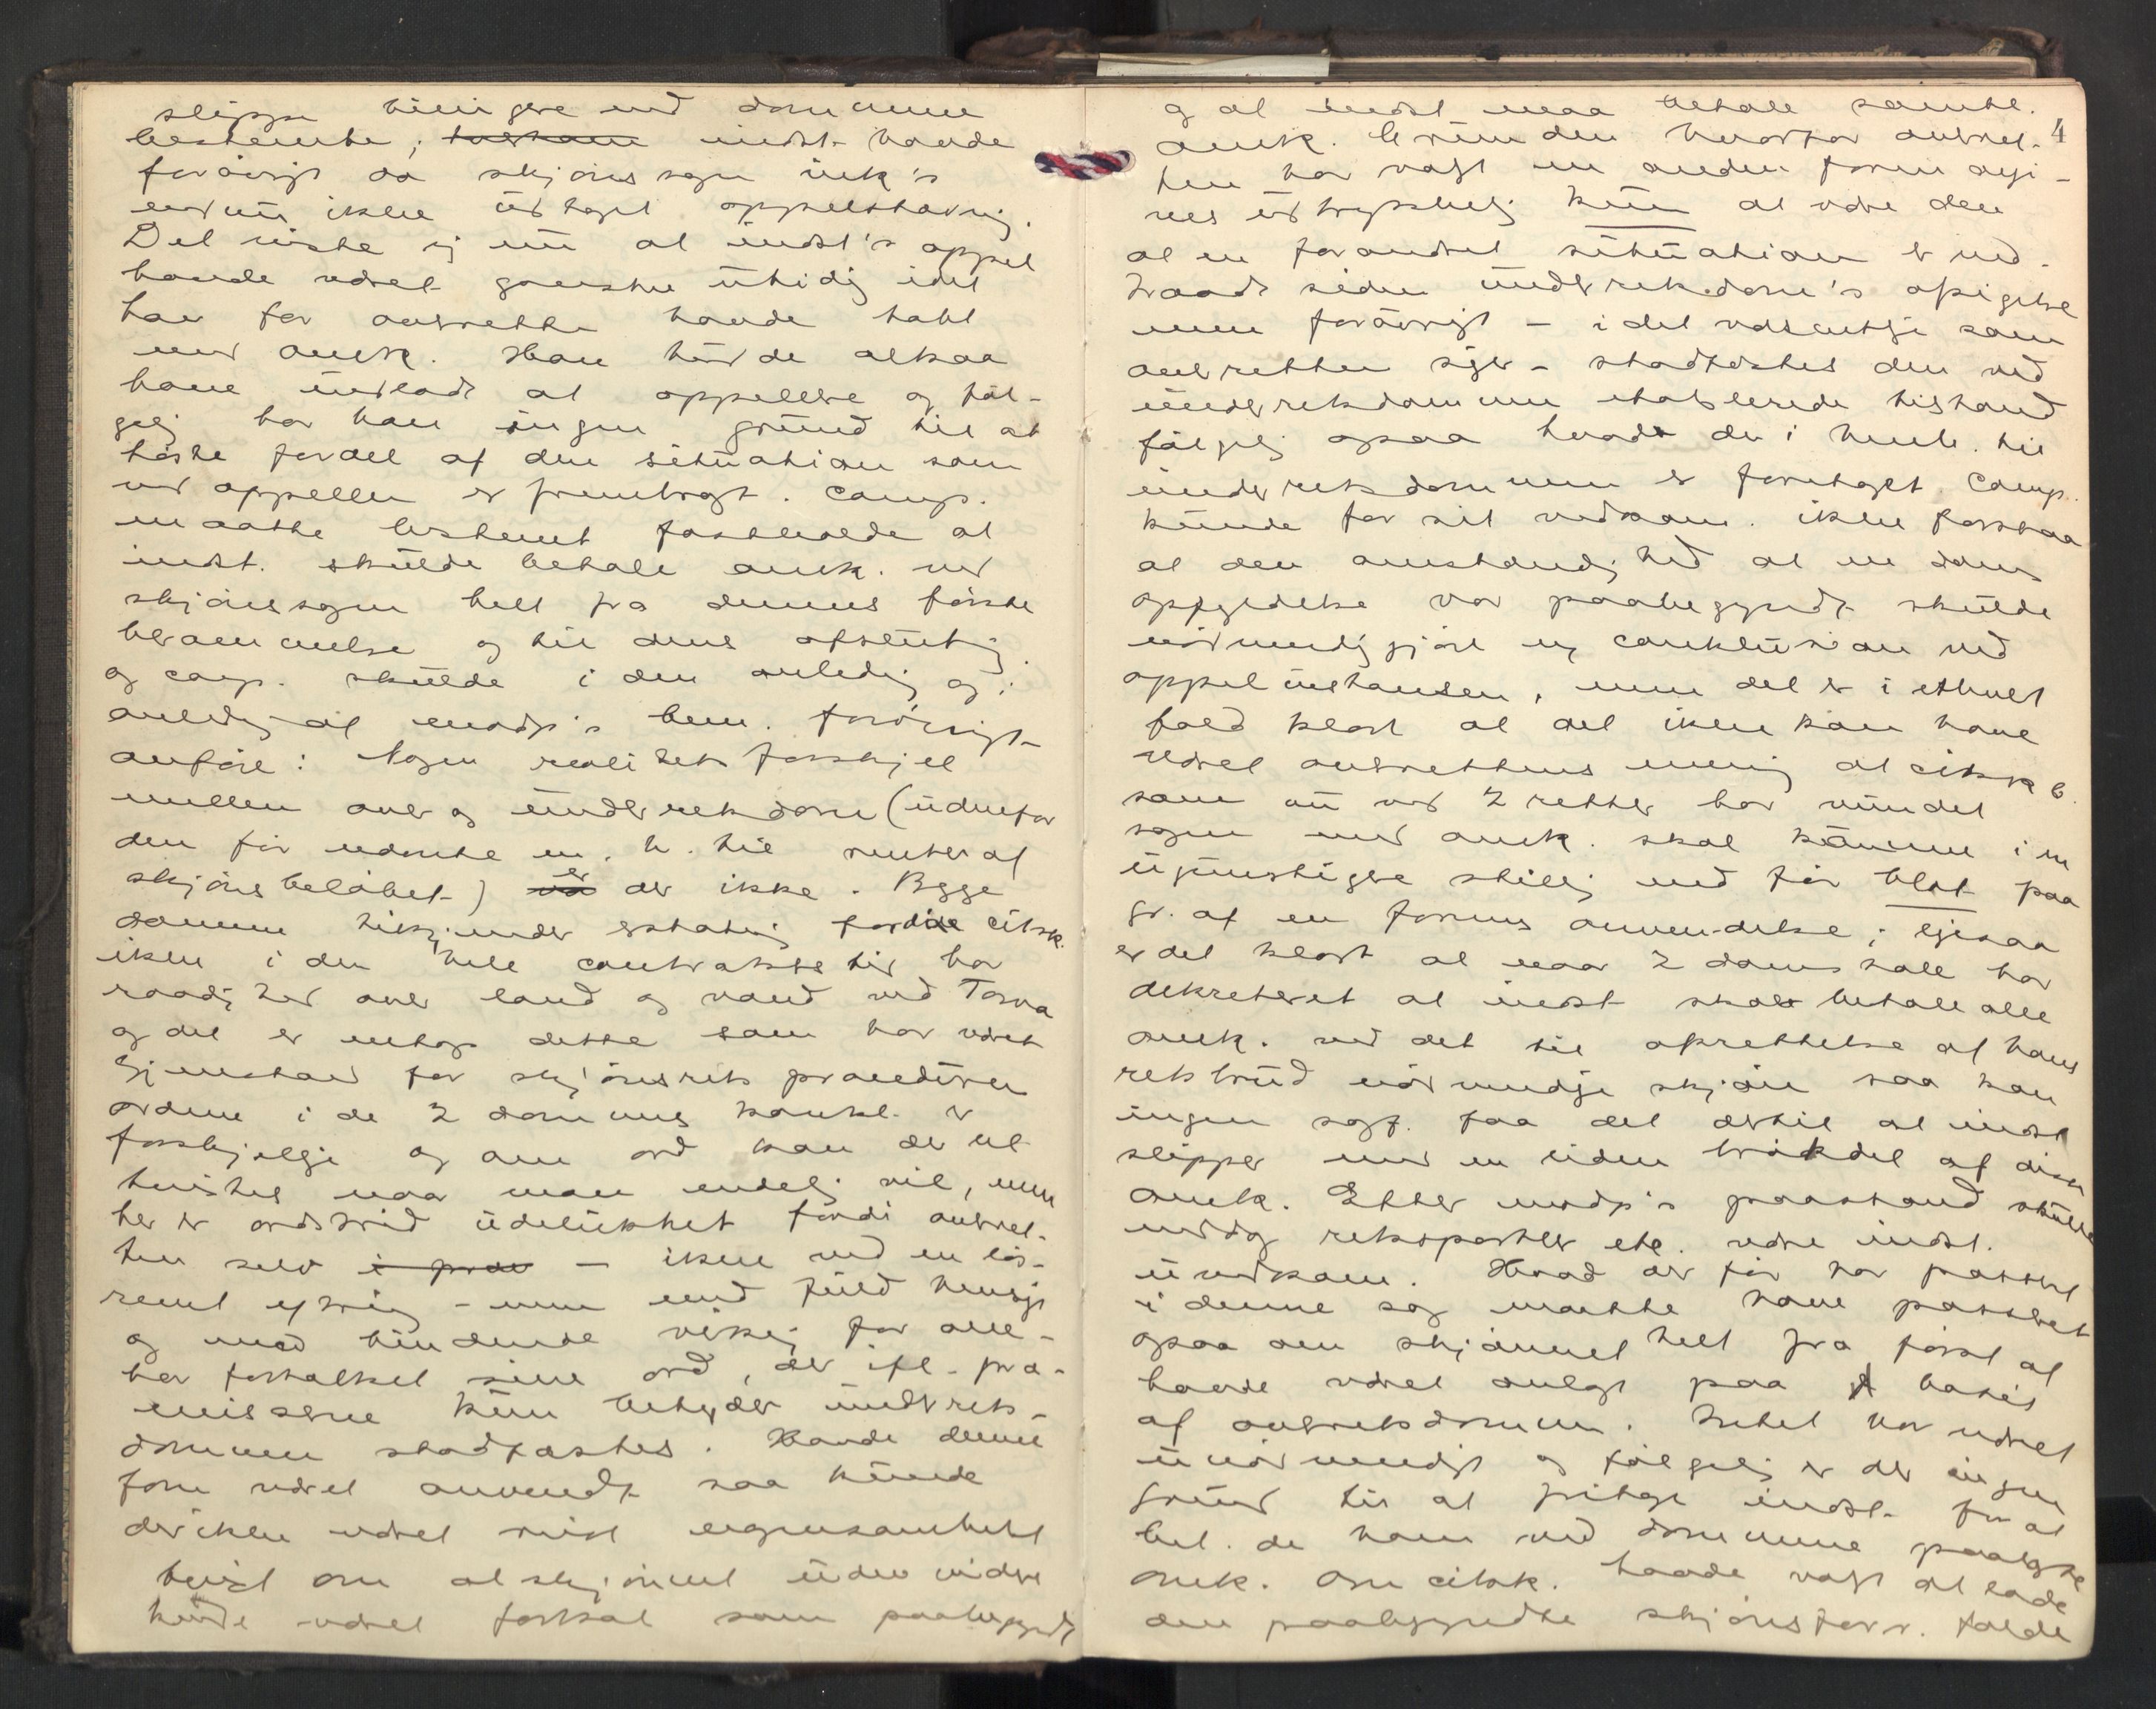 slippe billigere end dommene
bestemte; indst. havde
forövrigt da skjönssagen ink's
endnu ikke udtaget appelstævning.
Det viste sig nu at indst's appel
havde været ganske utidig idet
han for overretten havde tabt
med omk. Han burde altsaa
have undladt at appellere og föl-
gelig har han ingen grund til at
höste fordel af den situation som
ved appellen er frembragt. Comp.
maatte bestemt fastholde at
indst. skulde betale omk. ved
skjönssagen helt fra dennes förste
berammelse og til dens afslutning.
og comp. skulde i den anledning og i
anledning af modp's bem. forövrigt
anföre: Nogen realitets forskjel
mellem over og underretsdom (udenfor
den för nævnte m. h. til renter af
skjönsbelöbet) er der ikke. Begge
domme tilkjender erstatning fordi citsk.
ikke i den hele contraktstid har
raadighed over land og vand ved Torva
og det er netop dette som har været
gjenstand for skjönsrets pröven
ordene i de 2 dommes konkl. er
forskjellige og om ord kan der jo
tvistes naar man endelig vil, men
her er ordstrid udelukket fordi overret-
ten selv - ikke ved en lös-
revet ytring - men med fuld hensigt
og med bindende virkning for alle -
har fortolket sine ord, der ifl. præ-
misserne kun betyder underrets-
dommen stadfæstes. Havde denne
form været anvendt saa kunde
der ikke været reist nogensomhelst
tvivl om at skjönnet uden videre
kunde været fortsat som paabegyndt
4
og at indst maa betale samtl.
omk. Grunden hvorfor overret-
ten har valgt en anden form angi-
ves udtrykkelig kun at være den
at en forandret situation er ind-
traadt siden underretsdom's afsigelse
men forövrigt - i det væsentlige som
overretten siger - stadfæstes den ved
underretsdommen etablerede tilstand
fölgelig ogsaa hvad der i henh. til
underretsdommen er foretaget. Comp.
kunde for sit vedkom. ikke forstaa
at den omstændighed at en doms
opfyldelse var paabegyndt skulde
nödvendiggjöre ny conklusion ved
appelinstansen, men det er i ethvert
fald klart at det ikke kan have
været overrettens mening at citsk
som nu ved 2 retter har vundet
sagen med omk. skal komme i en
ugunstigere stilling end för blot paa
gr. af en forms anvendelse; ligesaa
er det klart at naar 2 domstole har
dekreteret at indst skal betale alle
omk. ved det til oprettelse af hans
retsbrud nödvendige skjön saa kan
ingen sagf. faa det dertil at indst
slipper med en liden brökdel af disse
omk. Efter modp's paastand skulde
endog retsparter etc. være indst.
uvedkom. Hvad der för har passert
i denne sag maatte have passeret
ogsaa om skjönnet helt fra först af
havde været anlagt paa basis
af overretsdommen. Intet har været
unödvendigt og fölgelig er der ingen
grund til at fritage indst. for at
bet. de ham ved dommene paalagte
omk. Om citsk. havde valgt at lade
den paabegyndte skjönsforr. falde